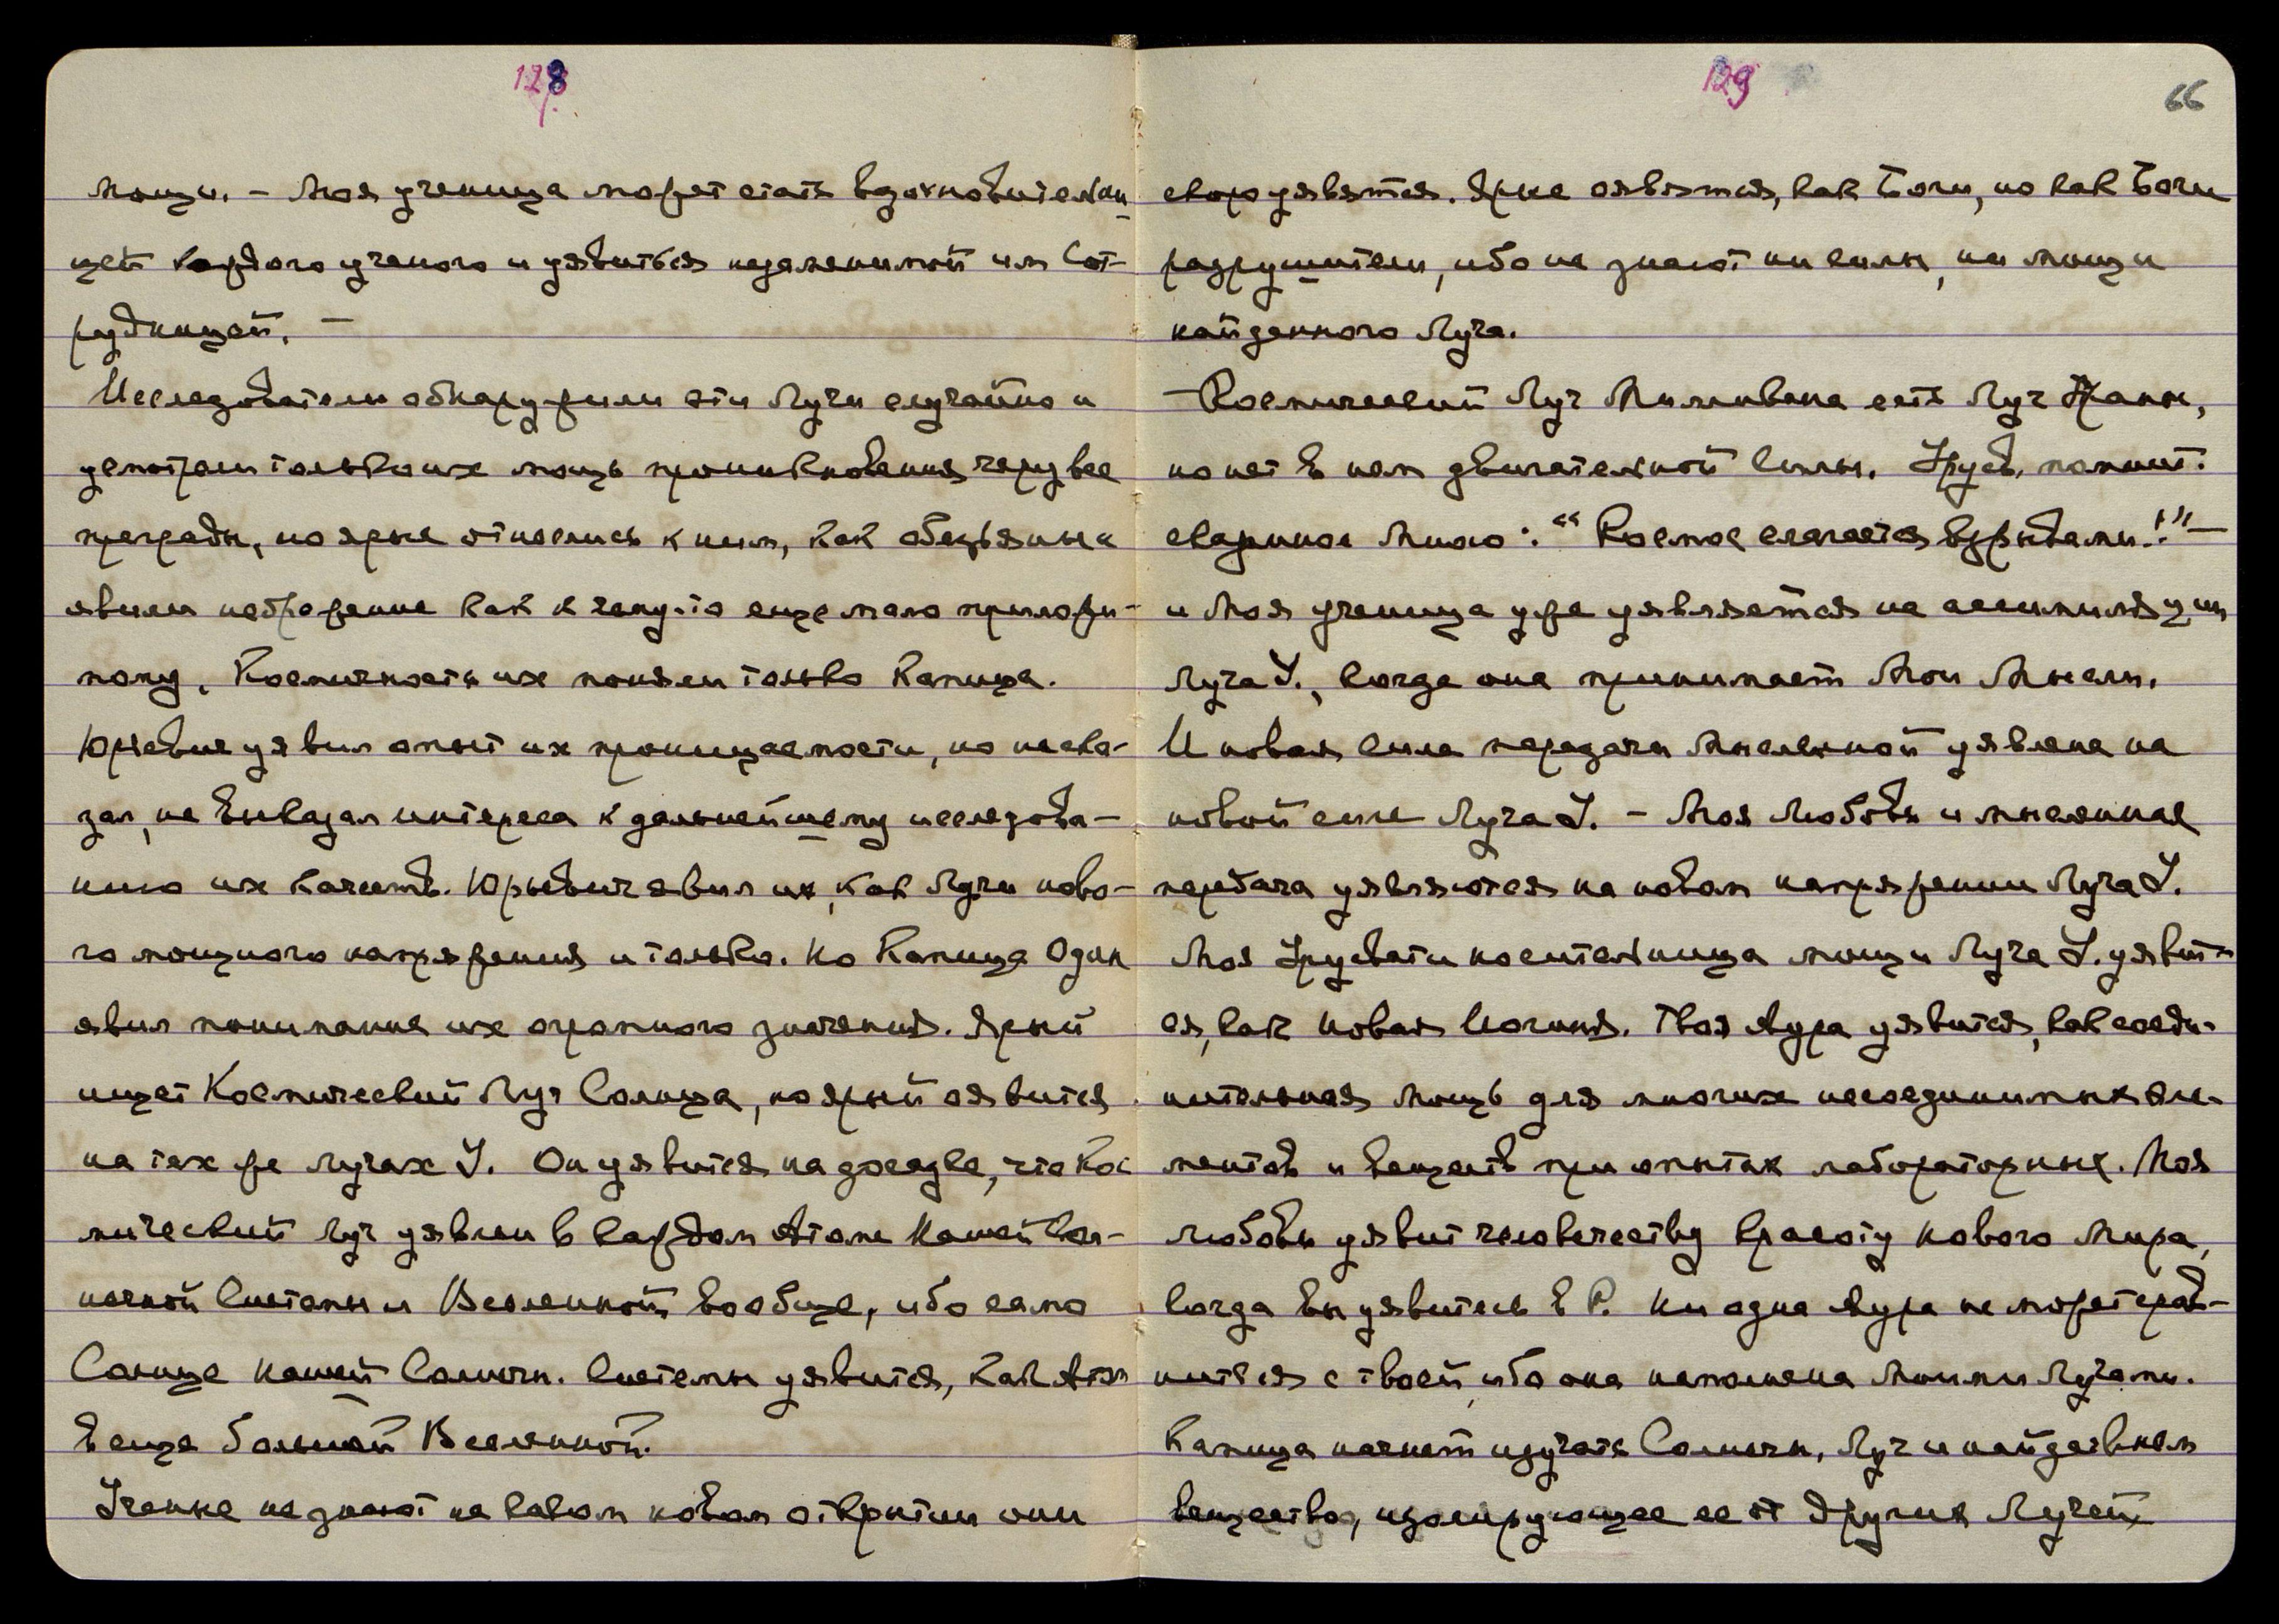 128
мощи. – Моя ученица может стать вдохновительни-
цей каждого ученого и уявиться незаменимой им Сот-
рудницей. –
Исследователи обнаружили эти Лучи случайно и
усмотрели только их мощь проникновения через все
преграды, но ярые отнеслись к ним, как обезьяны и
явили небрежение как к чему-то еще мало приложи-
мому. Космичность их понял только Капица.
Юрьевич уявил опыт их проницаемости, но не ска-
зал, не выказал интереса к дальнейшему исследова-
нию их качеств. Юрьевич явил их, как Лучи ново-
го мощного напряжения и только. Но Капица Один
явил понимание их огромного значения. Ярый
ищет Космический Луч Солнца, но ярый оявится
на тех же лучах У. Он уявится на досаде, что Кос
мический Луч уявлен в каждом Атоме Нашей Сол-
нечной Системы и Вселенной вообще, ибо само
Солнце Нашей Солнечн. Системы уявится, как Атом
в еще большей Вселенной.
Ученые не знают на каком новом открытии они
129
66
скоро уявятся. Ярые оявятся, как Боги, но как Боги
разрушители, ибо не знают ни силы, ни мощи
найденного Луча.
– Космический Луч Милликана есть Луч Праны,
но нет в нем двигательной Силы. Урусв. помнит.
сказанное Мною: " Космос слагается взрывами!" –
и Моя ученица уже уявляется на ассимиляции
Луча У., когда она принимает Мои Мысли.
И новая сила передачи Мысленной уявлена на
новой силе Луча У. – Моя Любовь и мысленная
передача уявляются на новом напряжении Луча У.
Моя Урусвати носительница мощи Луча У. уявит-
ся, как Новая Иогиня. Твоя Аура уявится, как соеди-
нительная Мощь для многих несоединимых эле-
ментов и веществ при опытах лабораторных. Моя
любовь уявит человечеству красоту Нового Мира,
когда Вы уявитесь в Р. Ни одна Аура не может срав-
ниться с твоей, ибо она наполнена Моими Лучами.
Капица начнет изучать Солнечн. Луч и найдет в нем
вещество, изолирующее ее от других Лучей